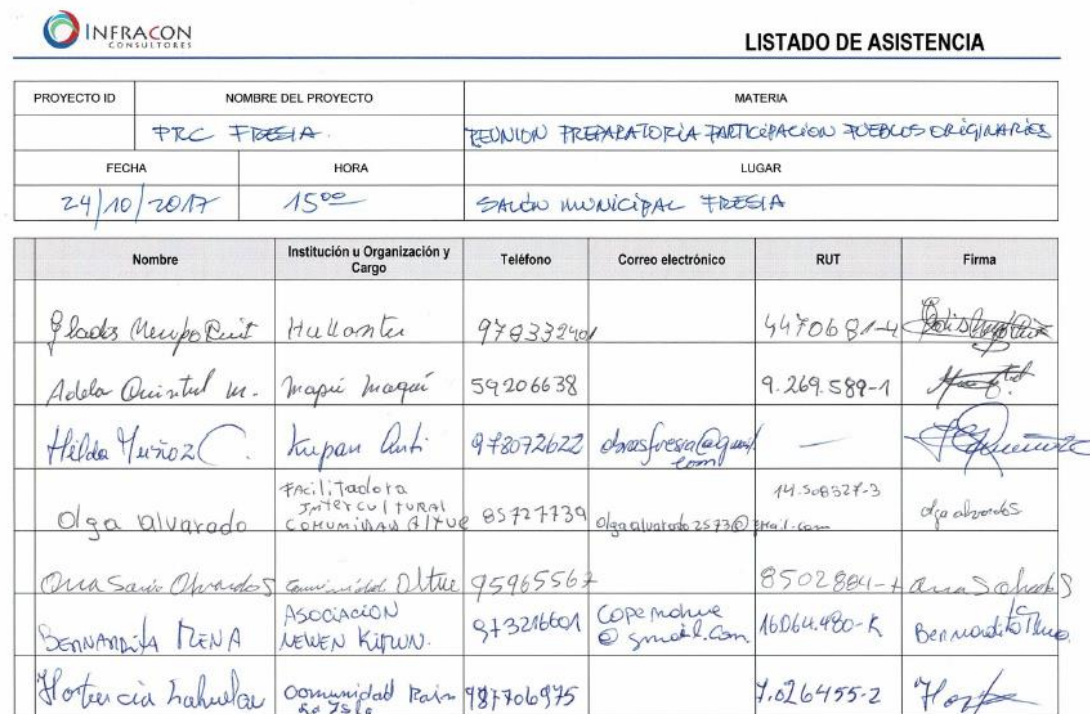 INFRACON
CONSULTORES
LISTADO DE ASISTENCIA
PROYECTO ID NOMBRE DEL PROYECTO MATERIA
PRC FRESIA. REUNION PREPARATORIA PARTICIPACION PUEBLOS ORIGINARIOS
FECHA HORA LUGAR
24/10/2017 1500 SALÓN MUNICIPAL FRESIA
Nombre Institución u Organización y Cargo Teléfono Correo electrónico RUT Firma
Ruiz 4470681-4
Adela Quintul m. 59206638 9.269.589-1
Hilda Muñoz C. Kupan Anti 978072622 —
Olga alvarado FAcilitadora INTERCULTURAL COMUNIDAD AlTUE 85727739 olgaalvarado2573@gmail.com 14.508327-3 olga alvarados
Comunidad Altue 95965567
BERNARDITA MENA ASOCIACION NEWEN 973216601 @gmail.com 16.064.480-K Bernardita Mena
Hortencia Comunidad Rain La Isla 987706975 7.026455-2